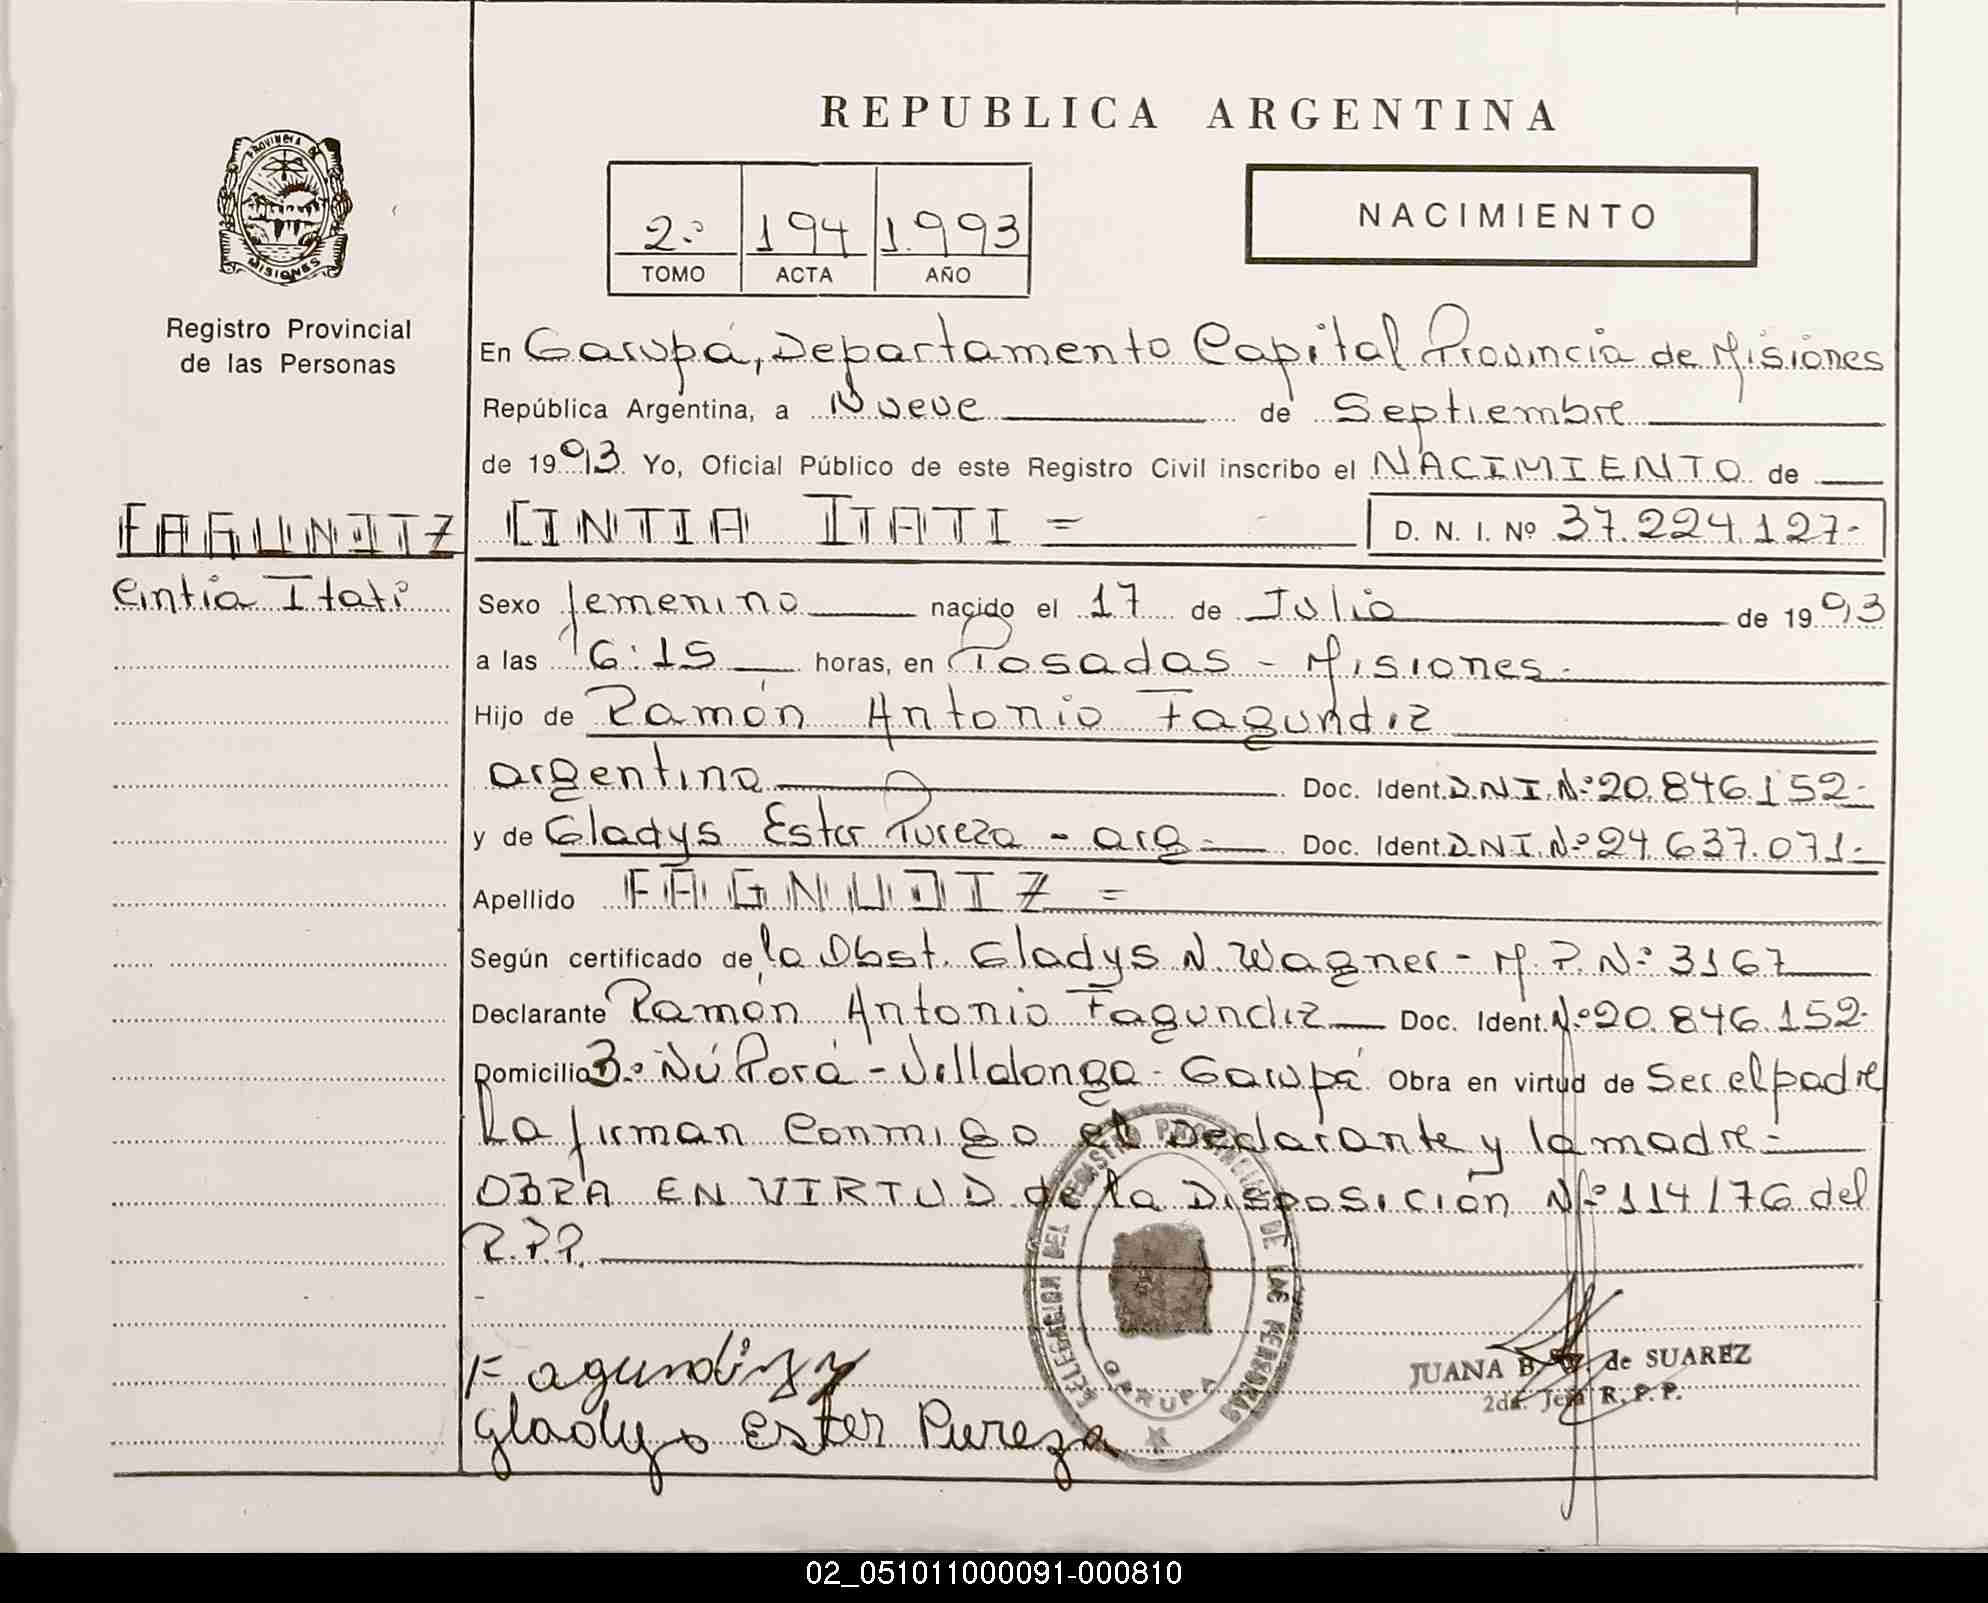 REPUBLICA ARGENTINA
PROVINCIA DE
MISIONES
2º 194 1.993
TOMO ACTA AÑO
NACIMIENTO
Registro Provincial
de las Personas
En Garupá, Departamento Capital Provincia de Misiones
República Argentina, a Nueve de Septiembre
de 1993. Yo, Oficial Público de este Registro Civil inscribo el NACIMIENTO de
FAGUNDIZ CINTIA ITATI = D. N. I. Nº 37.224.127-
Cintia Itati Sexo femenino nacido el 17 de Julio de 1993
a las 16:15 horas, en Posadas - Misiones.
Hijo de Ramón Antonio Fagundiz
argentino Doc. Ident. D.N.I. Nº 20.846.152-
y de Gladys Ester Pureza - arg - Doc. Ident. D.N.I. Nº 24.637.071-
Apellido FAGNUDIZ =
Según certificado de la Obst. Gladys N. Wagner - M.P. Nº 3167
Declarante Ramón Antonio Fagundiz Doc. Ident. Nº 20.846.152-
Domicilio Bº Ñú Porá - Villalonga - Garupá Obra en virtud de Ser el padre
La firman conmigo el Declarante y la madre -
OBRA EN VIRTUD de la Disposición Nº 114/76 del
R.P.P.
DELEGACION DEL REGISTRO PROVINCIAL DE LAS PERSONAS
GARUPA
Fagundizz
Gladys Ester Pureza
JUANA B. de SUAREZ
2da. Jefa R.P.P.
02_051011000091-000810